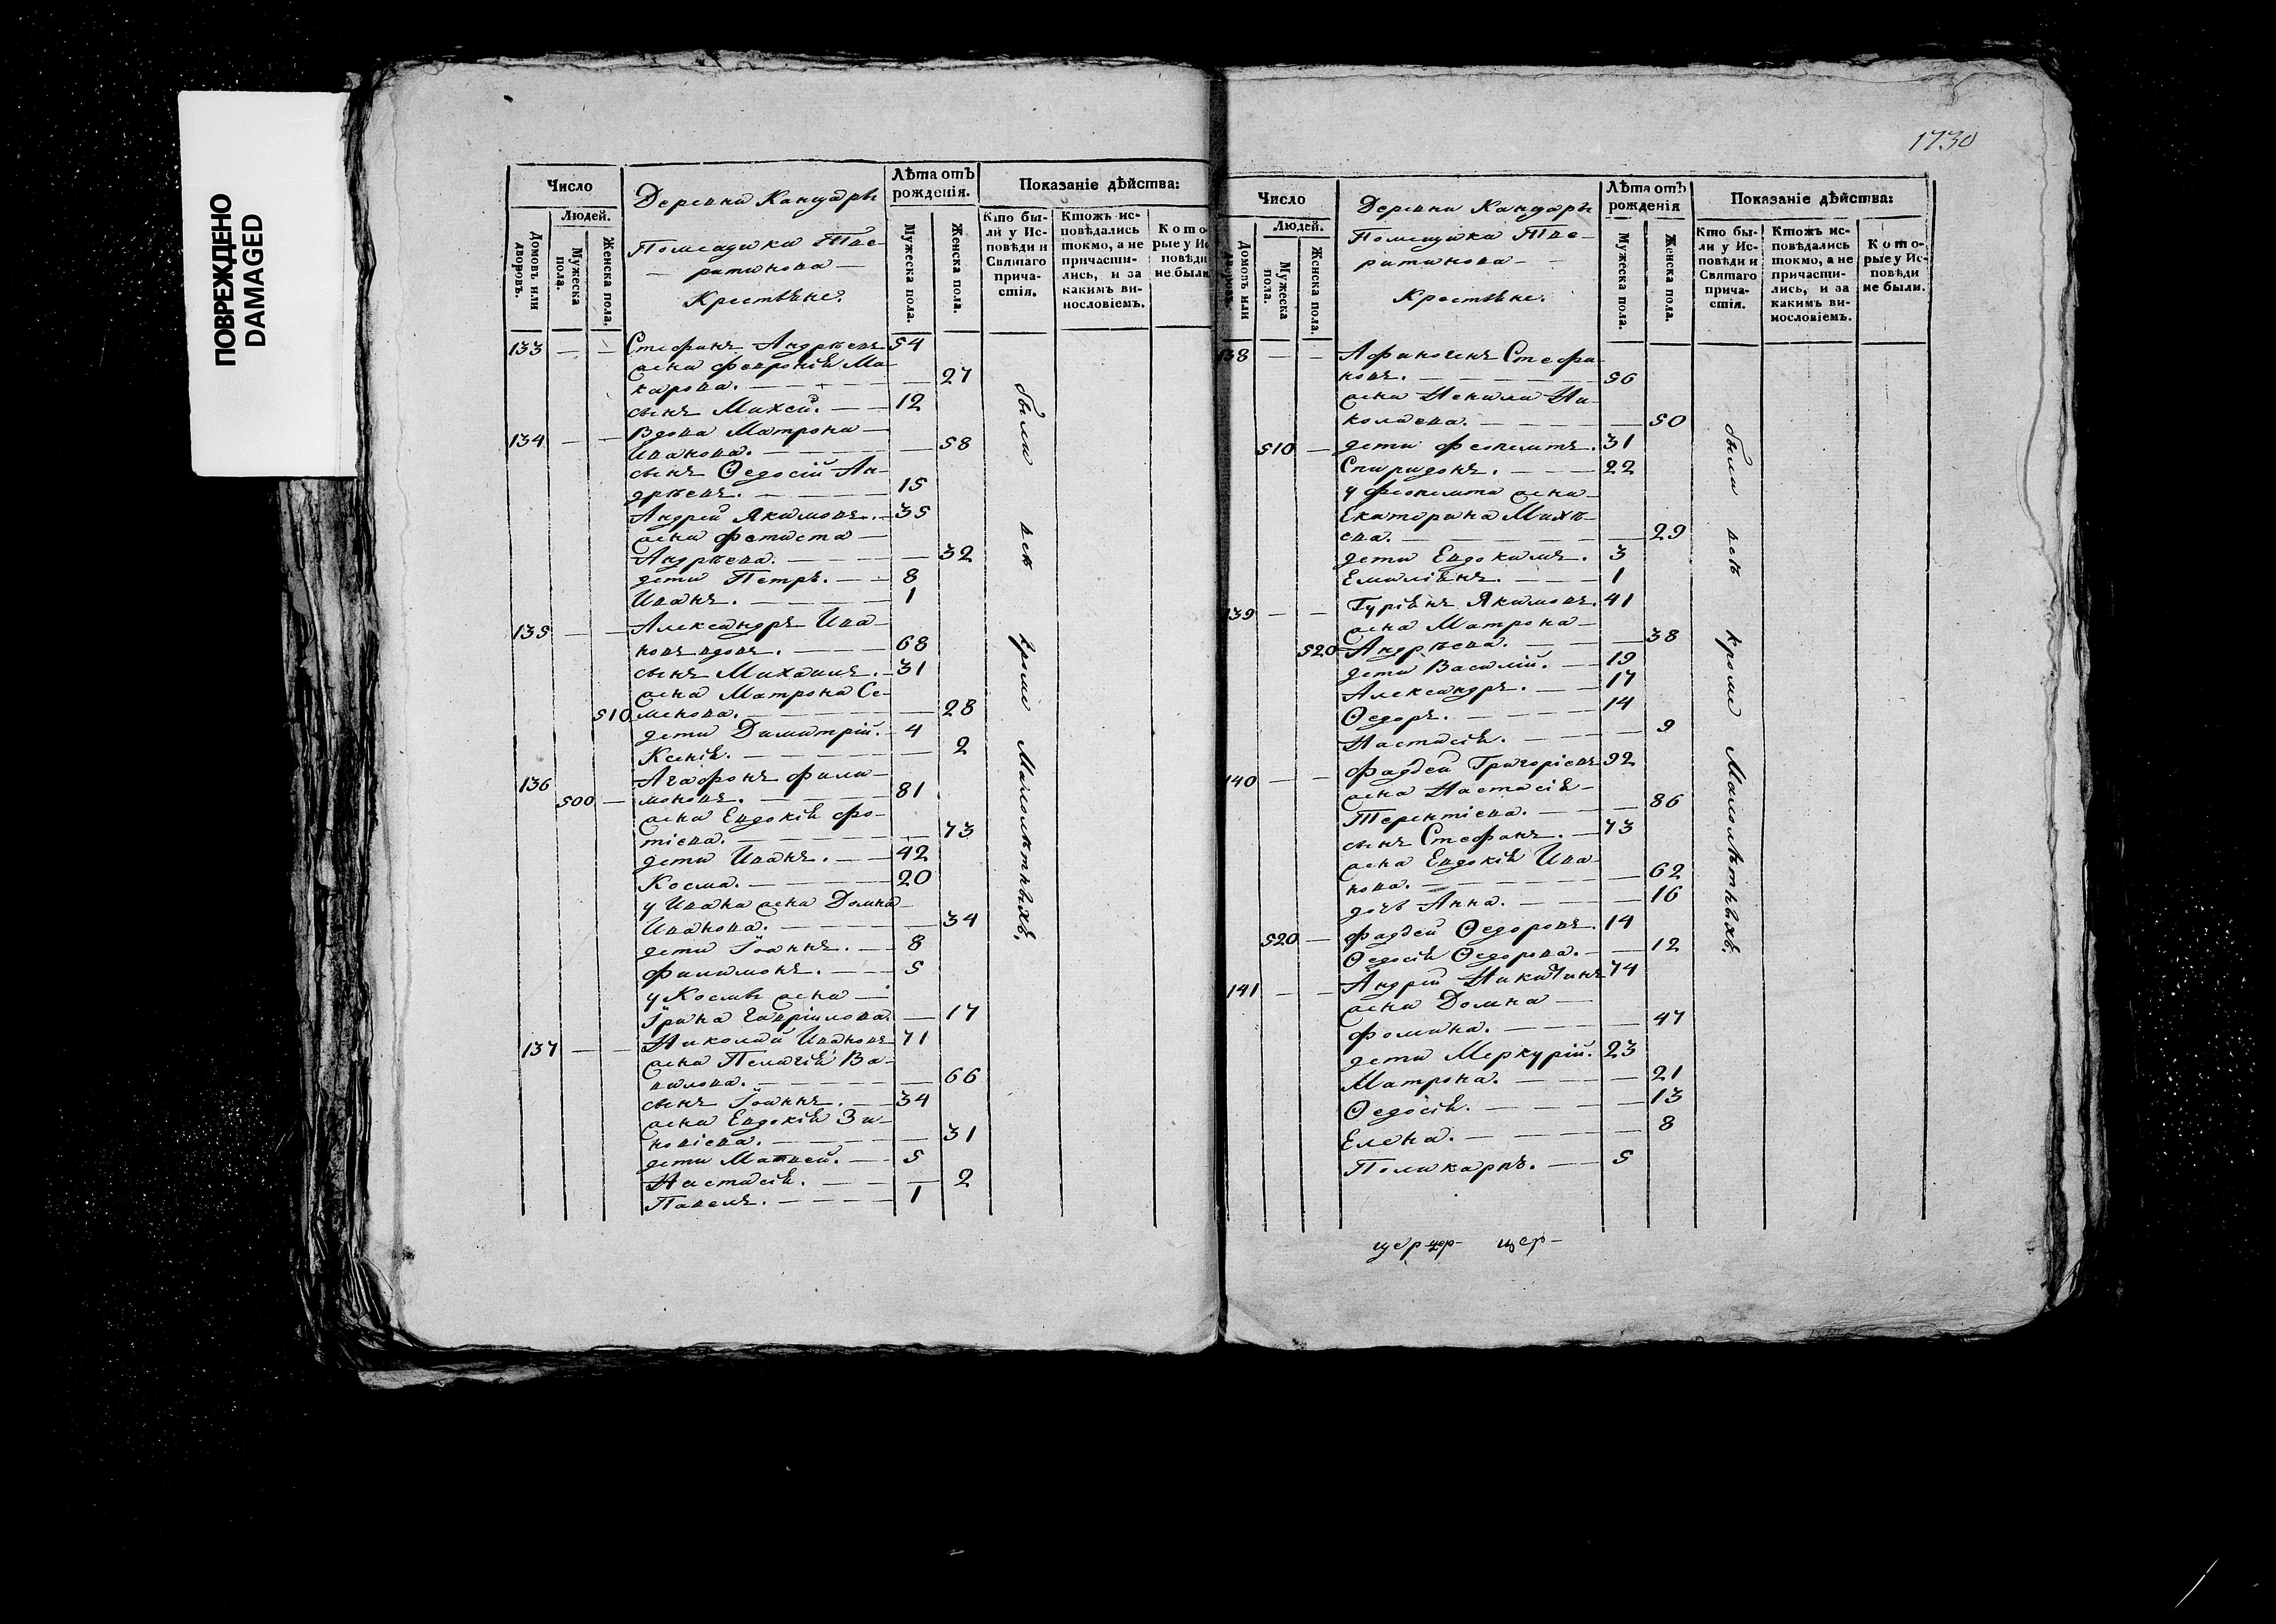 ПОВРЕЖДЕНО
DAMAGED
Число
Людей.
Домовъ или дворовъ.
Мужеска пола.
Женска пола.
Деревни
Помещика Тве-
ритинова
Крестьяне.
Лѣта отъ
рожденія.
Мужеска пола.
Женска пола.
Показаніе дѣйства:
Кто бы-
ли у Ис-
повѣди и
Святаго
прича-
стія.
Ктожъ ис-
повѣдались
токмо, а не
причасти-
лись, и за
какимъ ви-
нословіемъ.
Кото-
рые у Ис
повѣди
не были
133 — — Стефанъ Андрѣевъ 54
жена Февронія Ма-
карова. — 27
сынъ Михей. — 12
134 — — Вдова Матрона
Иванова. — 58
сынъ Ѳедосій Ан-
дрѣевъ. — 15
Андрей Якимовъ. — 35
жена Фетиста
Андрѣева. — 32
дети Петръ. — 8
Иванъ. — 1
135 — — Александръ Ива-
новъ вдовъ. — 68
сынъ Михаилъ. — 31
жена Матрона Се-
510 менова. — 28
дети Димитрій. — 4
Ксенія. — 2
136 Агафонъ Фили-
500 — моновъ. — 81
жена Евдокія Фо-
тіева. — 73
дети Иванъ. — 42
Косма. — 20
у Ивана жена Домна
Иванова. — 34
дети Іоаннъ. — 8
Филимонъ. — 5
у Космы жена —
Ірина Гаврилова. — 17
137 — — Николай Ивановъ 71
жена Пелагія Ва-
вилова. — 66
сынъ Іоаннъ. — 34
жена Евдокія Зи-
новіева. — 31
дети Матвей. — 5
Настасія. — 2
Павелъ. — 1
были всѣ кромѣ Малолѣтныхъ.
1730
Число
Людей.
Домовъ или дворовъ.
Мужеска пола.
Женска пола.
Деревни
Помещика Тве-
ритинова
Крестьяне.
Лѣта отъ
рожденія
Мужеска пола.
Женска пола.
Показаніе дѣйства:
Кто бы-
ли у Ис-
повѣди и
Святаго
прича-
стія.
Ктожъ ис-
повѣдались
токмо, а не
причасти-
лись, и за
какимъ ви-
нословіемъ.
Кото-
рые у Ис-
повѣди
не были.
138 — — Афиногенъ Стефа-
новъ. — 56
жена Ненила Ни-
колаева. — 50
510 — дети Феопемтъ. 31
Спиридонъ. — 22
у Феопемта жена
Екатерина Михѣ-
ева. — 29
дети Евдокимъ. 3
Емиліянъ. — 1
139 — — Гуріянъ Якимовъ. 41
жена Матрона
520 Андрѣева. — 38
дети Василій. — 19
Александръ. — 17
Ѳедоръ. — 14
Настасія. — 9
140 — — Фаддей Григоріевъ 92
жена Настасія
Терентіева. — 86
сынъ Стефанъ. — 73
жена Евдокія Ива-
нова. — 62
дочь Анна. — 16
520 — Фаддей Ѳедоровъ 14
Ѳедосія Ѳедорова. — 12
141 — — Андрей Никитинъ 74
жена Домна
Фомина. — 47
дети Меркурій. 23
Матрона. — 21
Ѳедосія. — 13
Елена. — 8
Поликарпъ. — 5
были всѣ кромѣ Малолѣтныхъ.